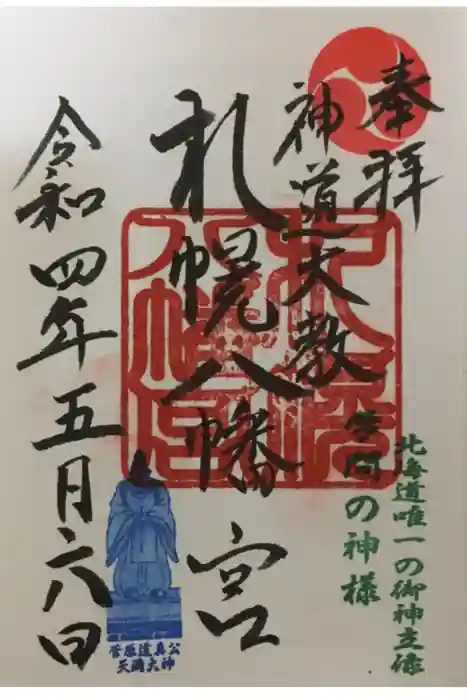 奉拝
神道大教
札幌八幡宮
令和四年五月六日
北海道唯一の御神主様
学問の神様
菅原道真公
天満大神
札幌
八幡宮